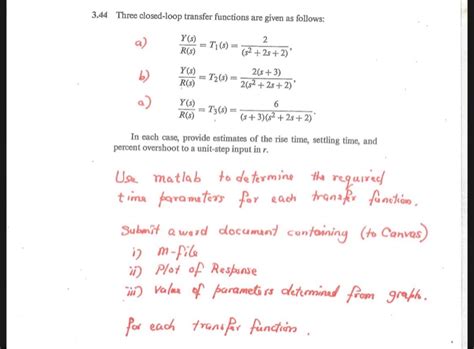 3.44 Three closed-loop transfer functions are given as follows:
a) Y(s)/R(s) = T₁(s) = 2/(s² + 2s + 2),
b) Y(s)/R(s) = T₂(s) = 2(s + 3)/2(s² + 2s + 2),
a) Y(s)/R(s) = T₃(s) = 6/(s + 3)(s² + 2s + 2).
In each case, provide estimates of the rise time, settling time, and
percent overshoot to a unit-step input in r.
Use matlab to determine the required
time parameters for each transfer function.
Submit a word document containing (to Canvas)
i) m-file
ii) Plot of Response
iii) value of parameters determined from graph.
for each transfer function.